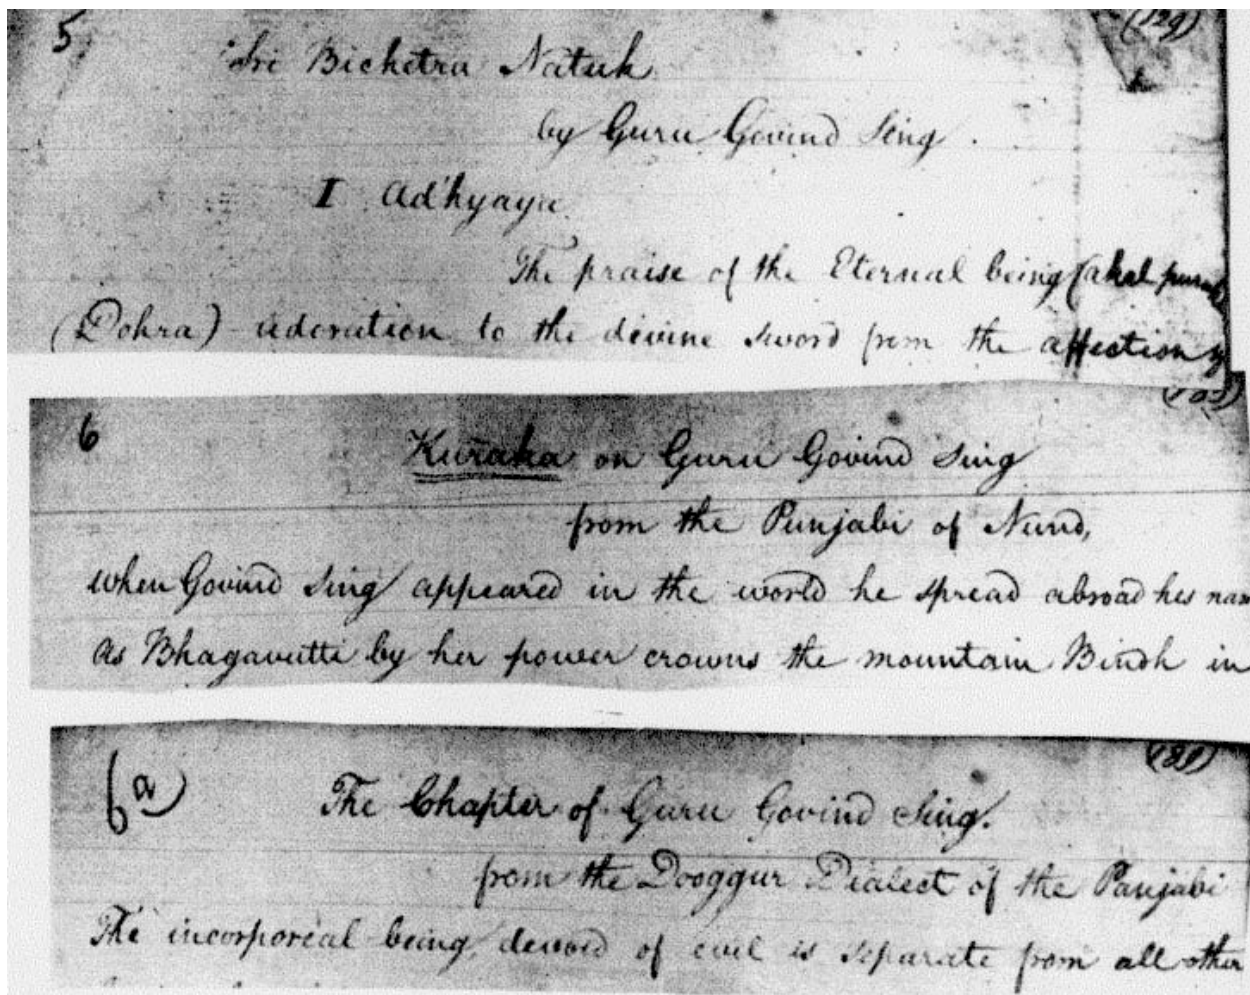 5
(129)
Sri Bichetra Natuk
by Guru Govind Sing.
I Ad'hyaya
The praise of the Eternal being (akal purus)
(Dohra) adoration to the divine sword from the affection
6
Kuraka on Guru Govind Sing
from the Punjabi of Nund,
when Govind Sing appeared in the world he spread abroad his nam
As Bhagavutti by her power crowns the mountain Bindh in
6a)
(181)
The Chapter of Guru Govind Sing.
from the Dooggur Dialect of the Panjabi
The incorporeal being, devoid of evil is separate from all other